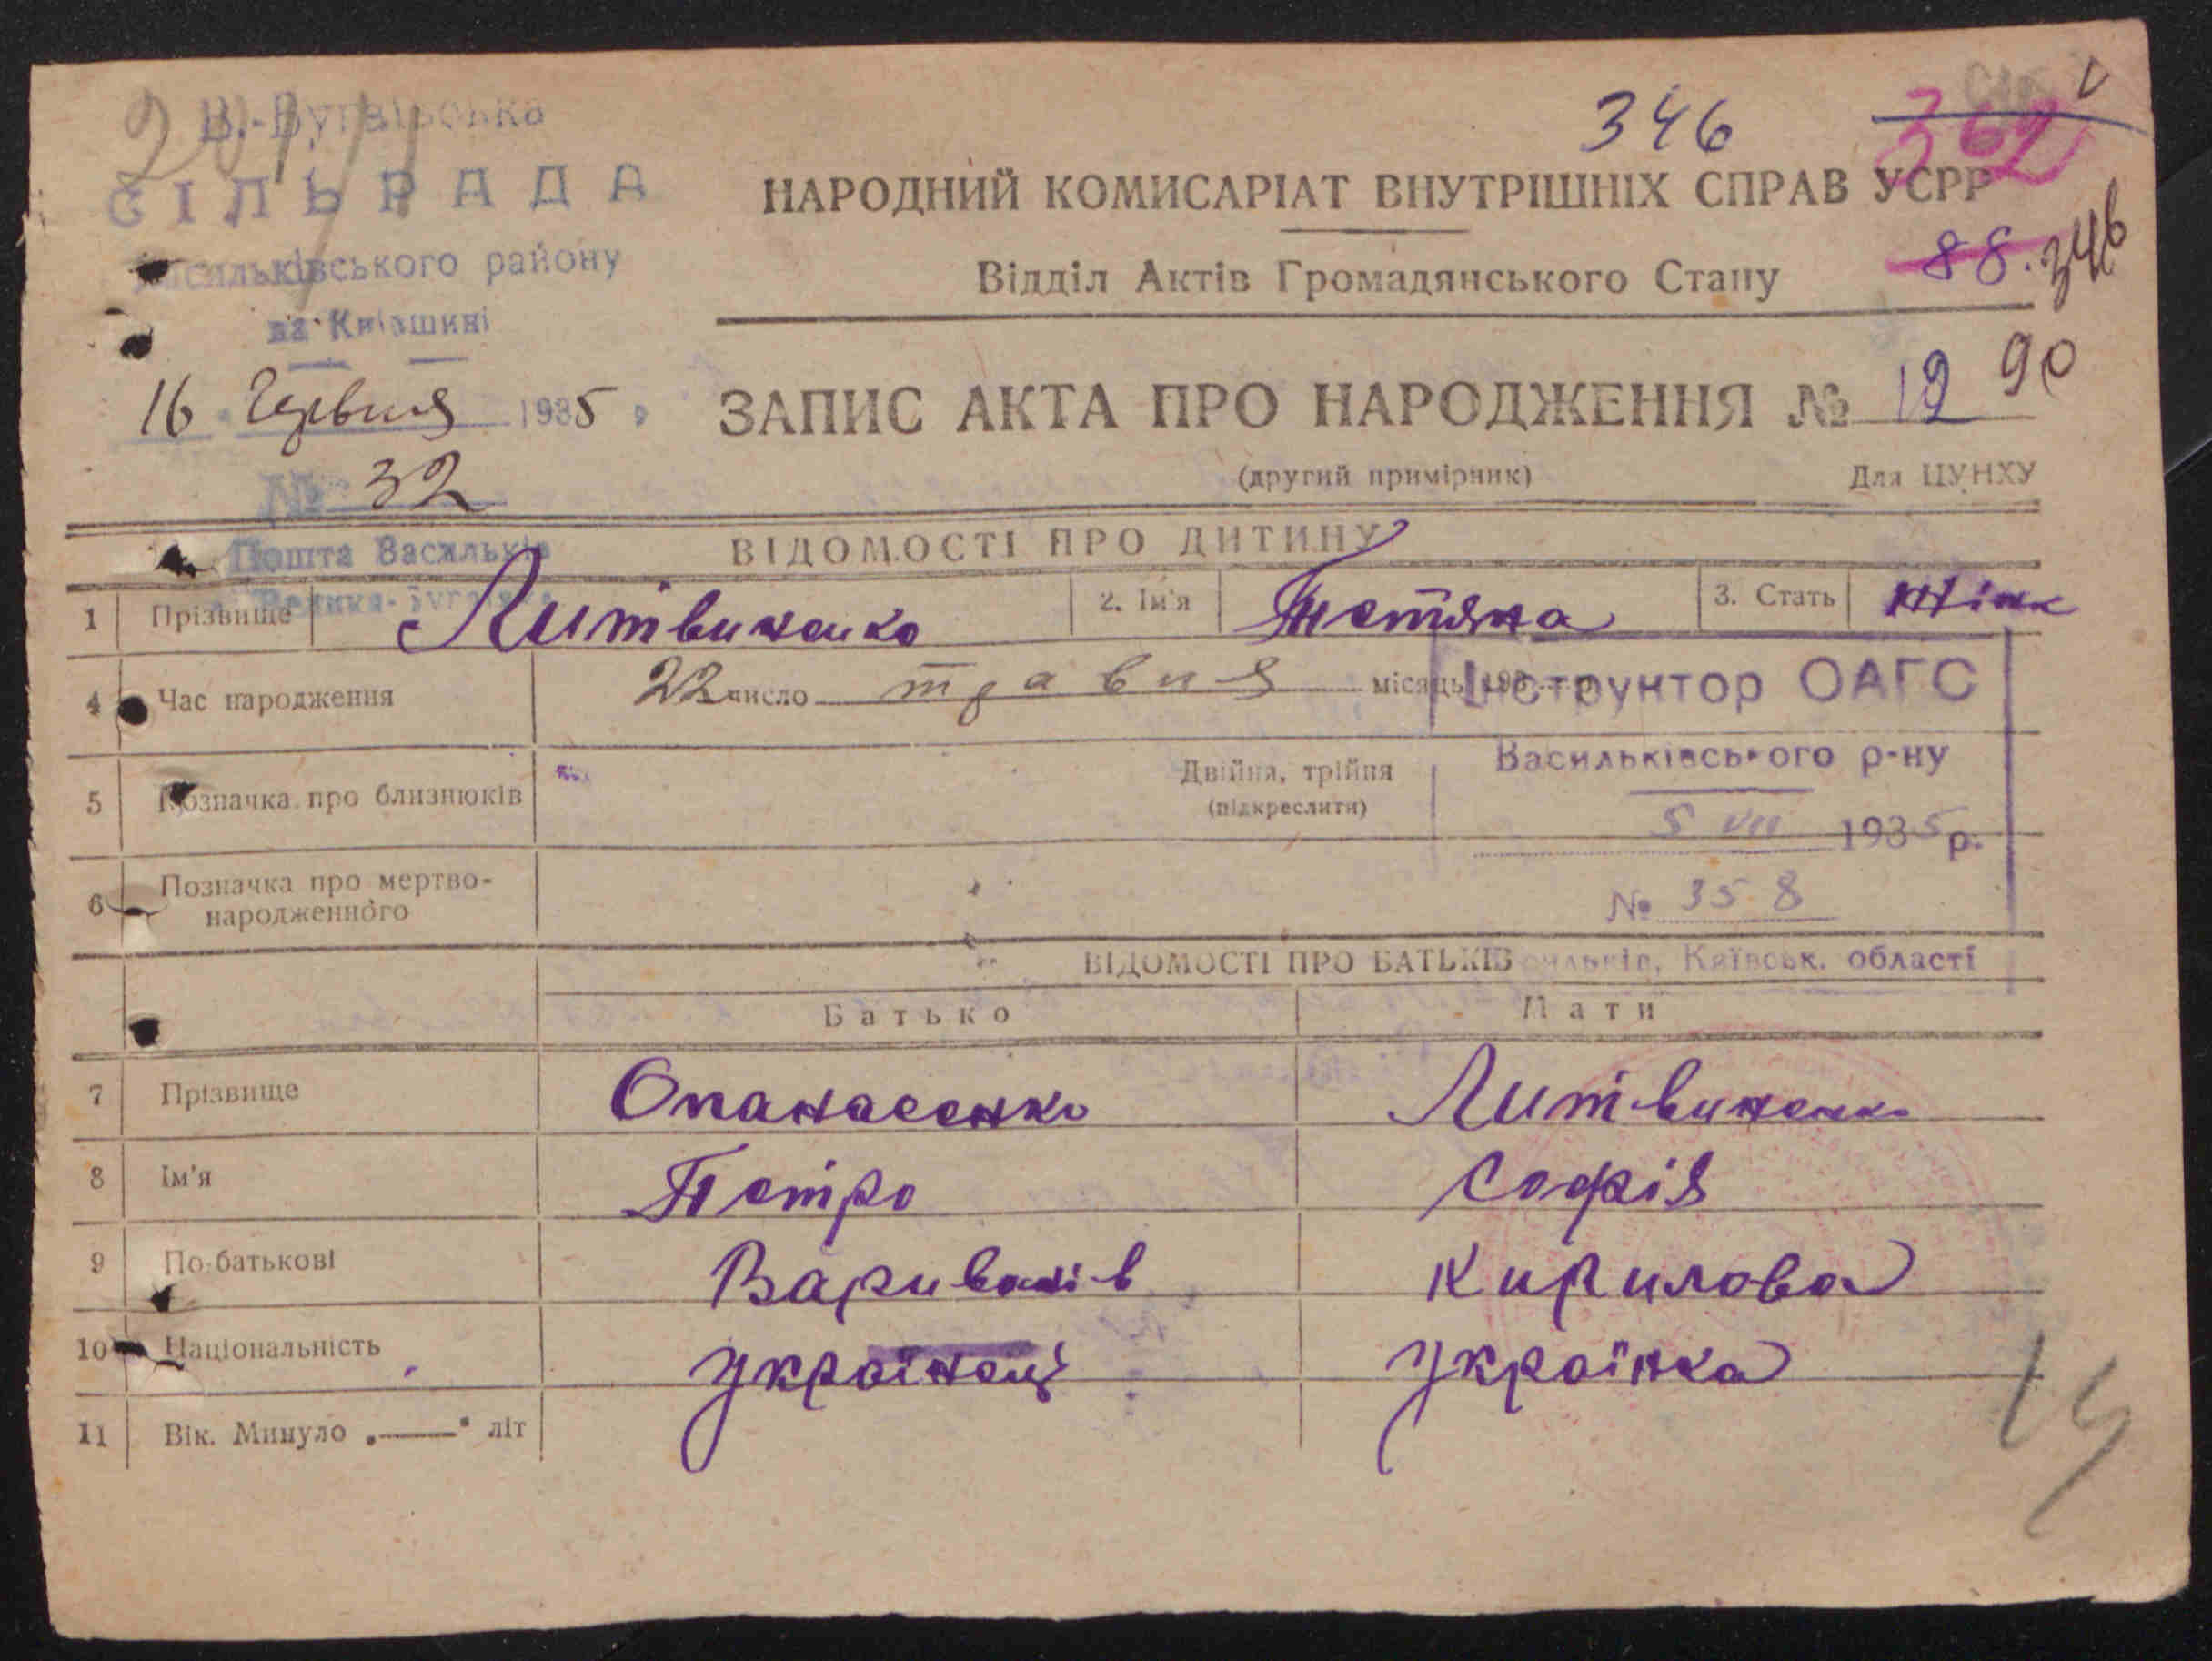 В.-Бугаївська
СІЛЬРАДА
Васильківського району
на Київщині
16 Червня 1935
№ 32
Пошта Васильків
346
362
НАРОДНИЙ КОМИСАРІАТ ВНУТРІШНІХ СПРАВ УСРР
88. 346
Відділ Актів Громадянського Стану
ЗАПИС АКТА ПРО НАРОДЖЕННЯ № 19 90
(другий примірник) Для ЦУНХУ
ВІДОМОСТІ ПРО ДИТИНУ
1 Прізвище Литвиненко 2. Ім'я Тетяна 3. Стать жінк
4 Час народження 22 число травня місяць 193
Інструктор ОАГС
Васильківського р-ну
5 VII 1935 р.
№ 358
Київськ. області
5 Позначка про близнюків Двійня, трійня
(підкреслити)
6 Позначка про мертво-
народженного
ВІДОМОСТІ ПРО БАТЬКІВ
Батько Мати
7 Прізвище Опанасенко Литвиненко
8 Ім'я Петро Софія
9 По-батькові Вариванів Кирилова
10 Національність Українець Українка
11 Вік. Минуло „——" літ